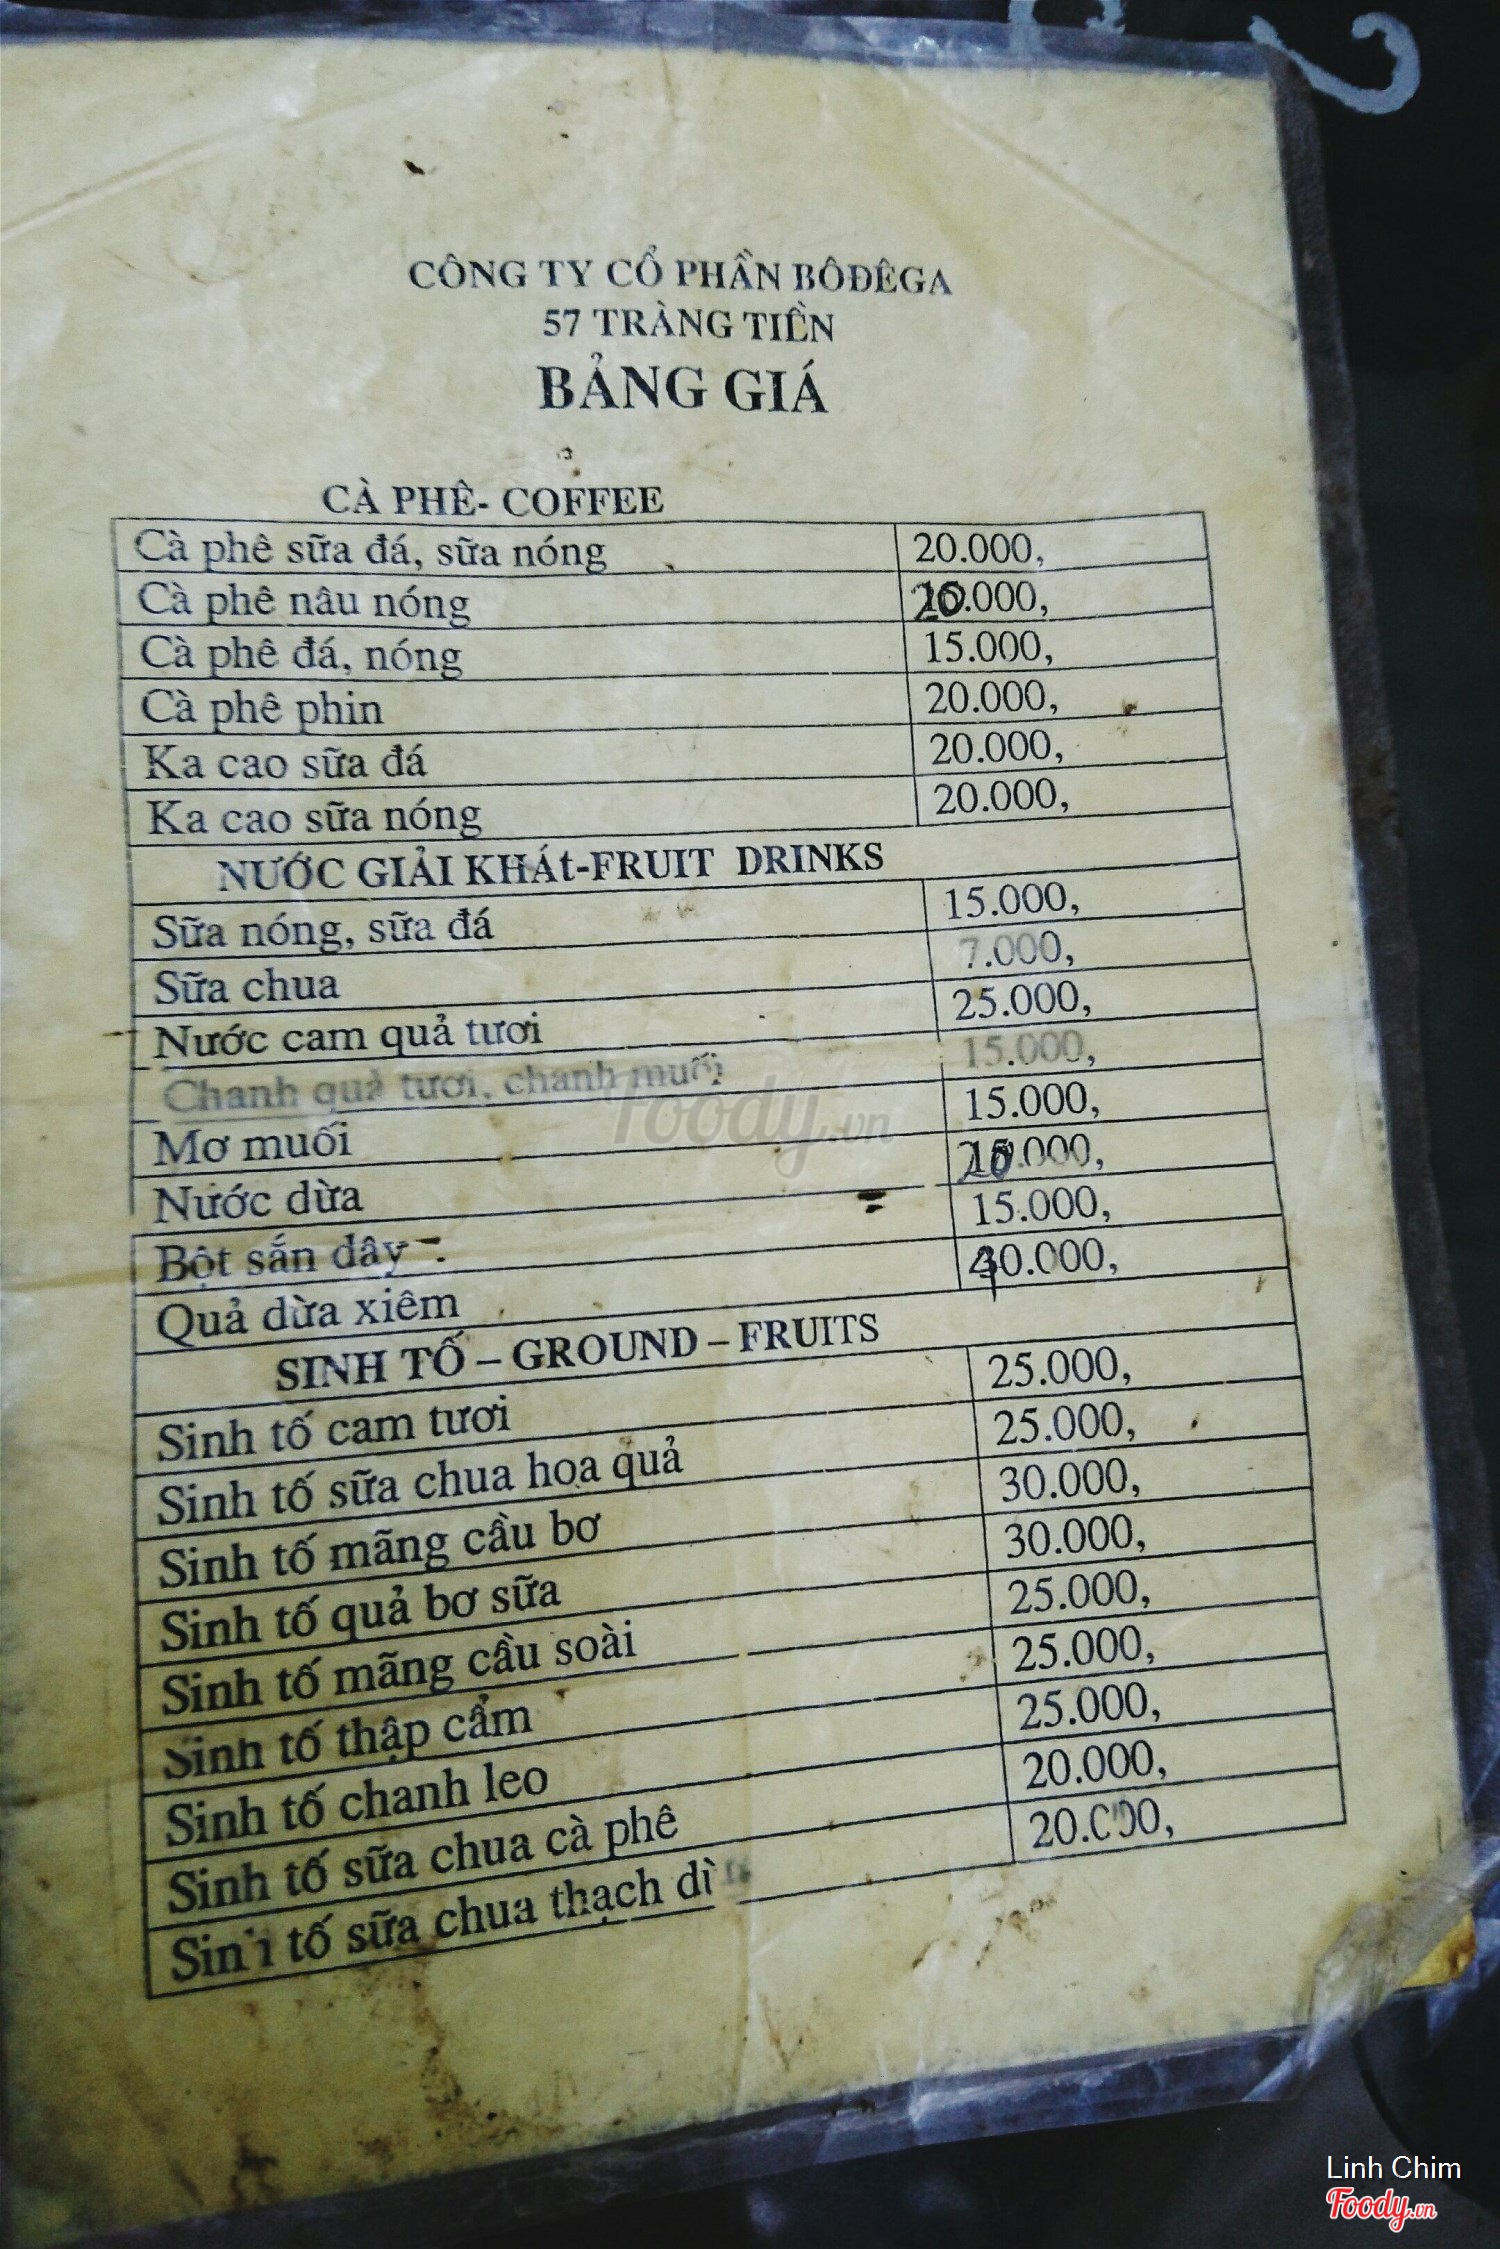 CÔNG TY CỔ PHẦN BÔĐÊGA
57 TRÀNG TIỀN
BẢNG GIÁ
CÀ PHÊ- COFFEE
Cà phê sữa đá, sữa nóng 20.000,
Cà phê nâu nóng 20.000,
Cà phê đá, nóng 15.000,
Cà phê phin 20.000,
Ka cao sữa đá 20.000,
Ka cao sữa nóng 20.000,
NƯỚC GIẢI KHÁt-FRUIT DRINKS
Sữa nóng, sữa đá 15.000,
Sữa chua 7.000,
Nước cam quả tươi 25.000,
Chanh quả tươi, chanh muối 15.000,
Mơ muối 15.000,
Nước dừa 20.000,
Bột sắn dây 15.000,
Quả dừa xiêm 40.000,
SINH TỐ – GROUND – FRUITS
Sinh tố cam tươi 25.000,
Sinh tố sữa chua hoa quả 25.000,
Sinh tố mãng cầu bơ 30.000,
Sinh tố quả bơ sữa 30.000,
Sinh tố mãng cầu soài 25.000,
Sinh tố thập cẩm 25.000,
Sinh tố chanh leo 25.000,
Sinh tố sữa chua cà phê 20.000,
Sinh tố sữa chua thạch 20.000,
Foody.vn
Linh Chim
Foody.vn